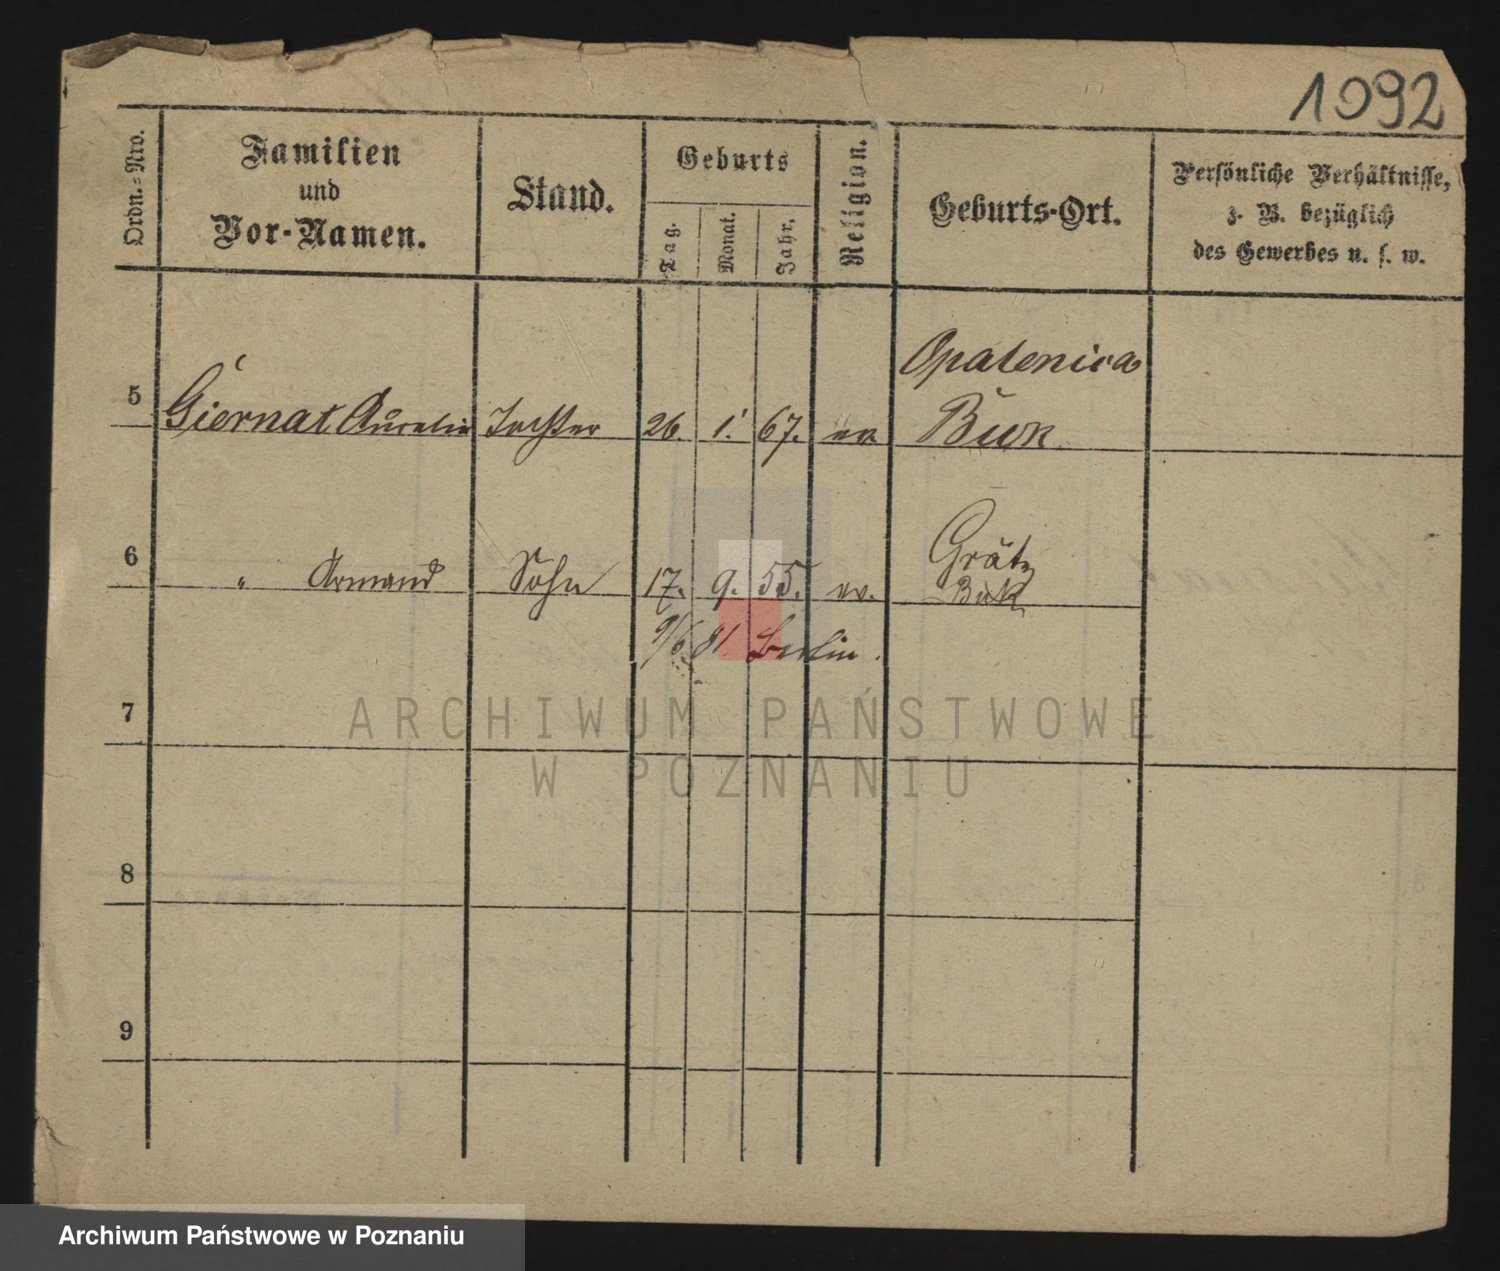 1092
Ordn.-Nro.
Familien
und
Vor-Namen.
Stand.
Geburts
Tag.
Monat.
Jahr.
Religion.
Geburts-Ort.
Persönliche Verhältnisse,
z. B. bezüglich
des Gewerbes u. s. w.
Opalenica
5 Giernat Aurelie Tochter 26. 1. 67. ev Buk
Grätz
6 " Armand Sohn 17. 9. 55. ev. Buk
9/6 81 Berlin.
7
ARCHIWUM PAŃSTWOWE
W POZNANIU
8
9
Archiwum Państwowe w Poznaniu